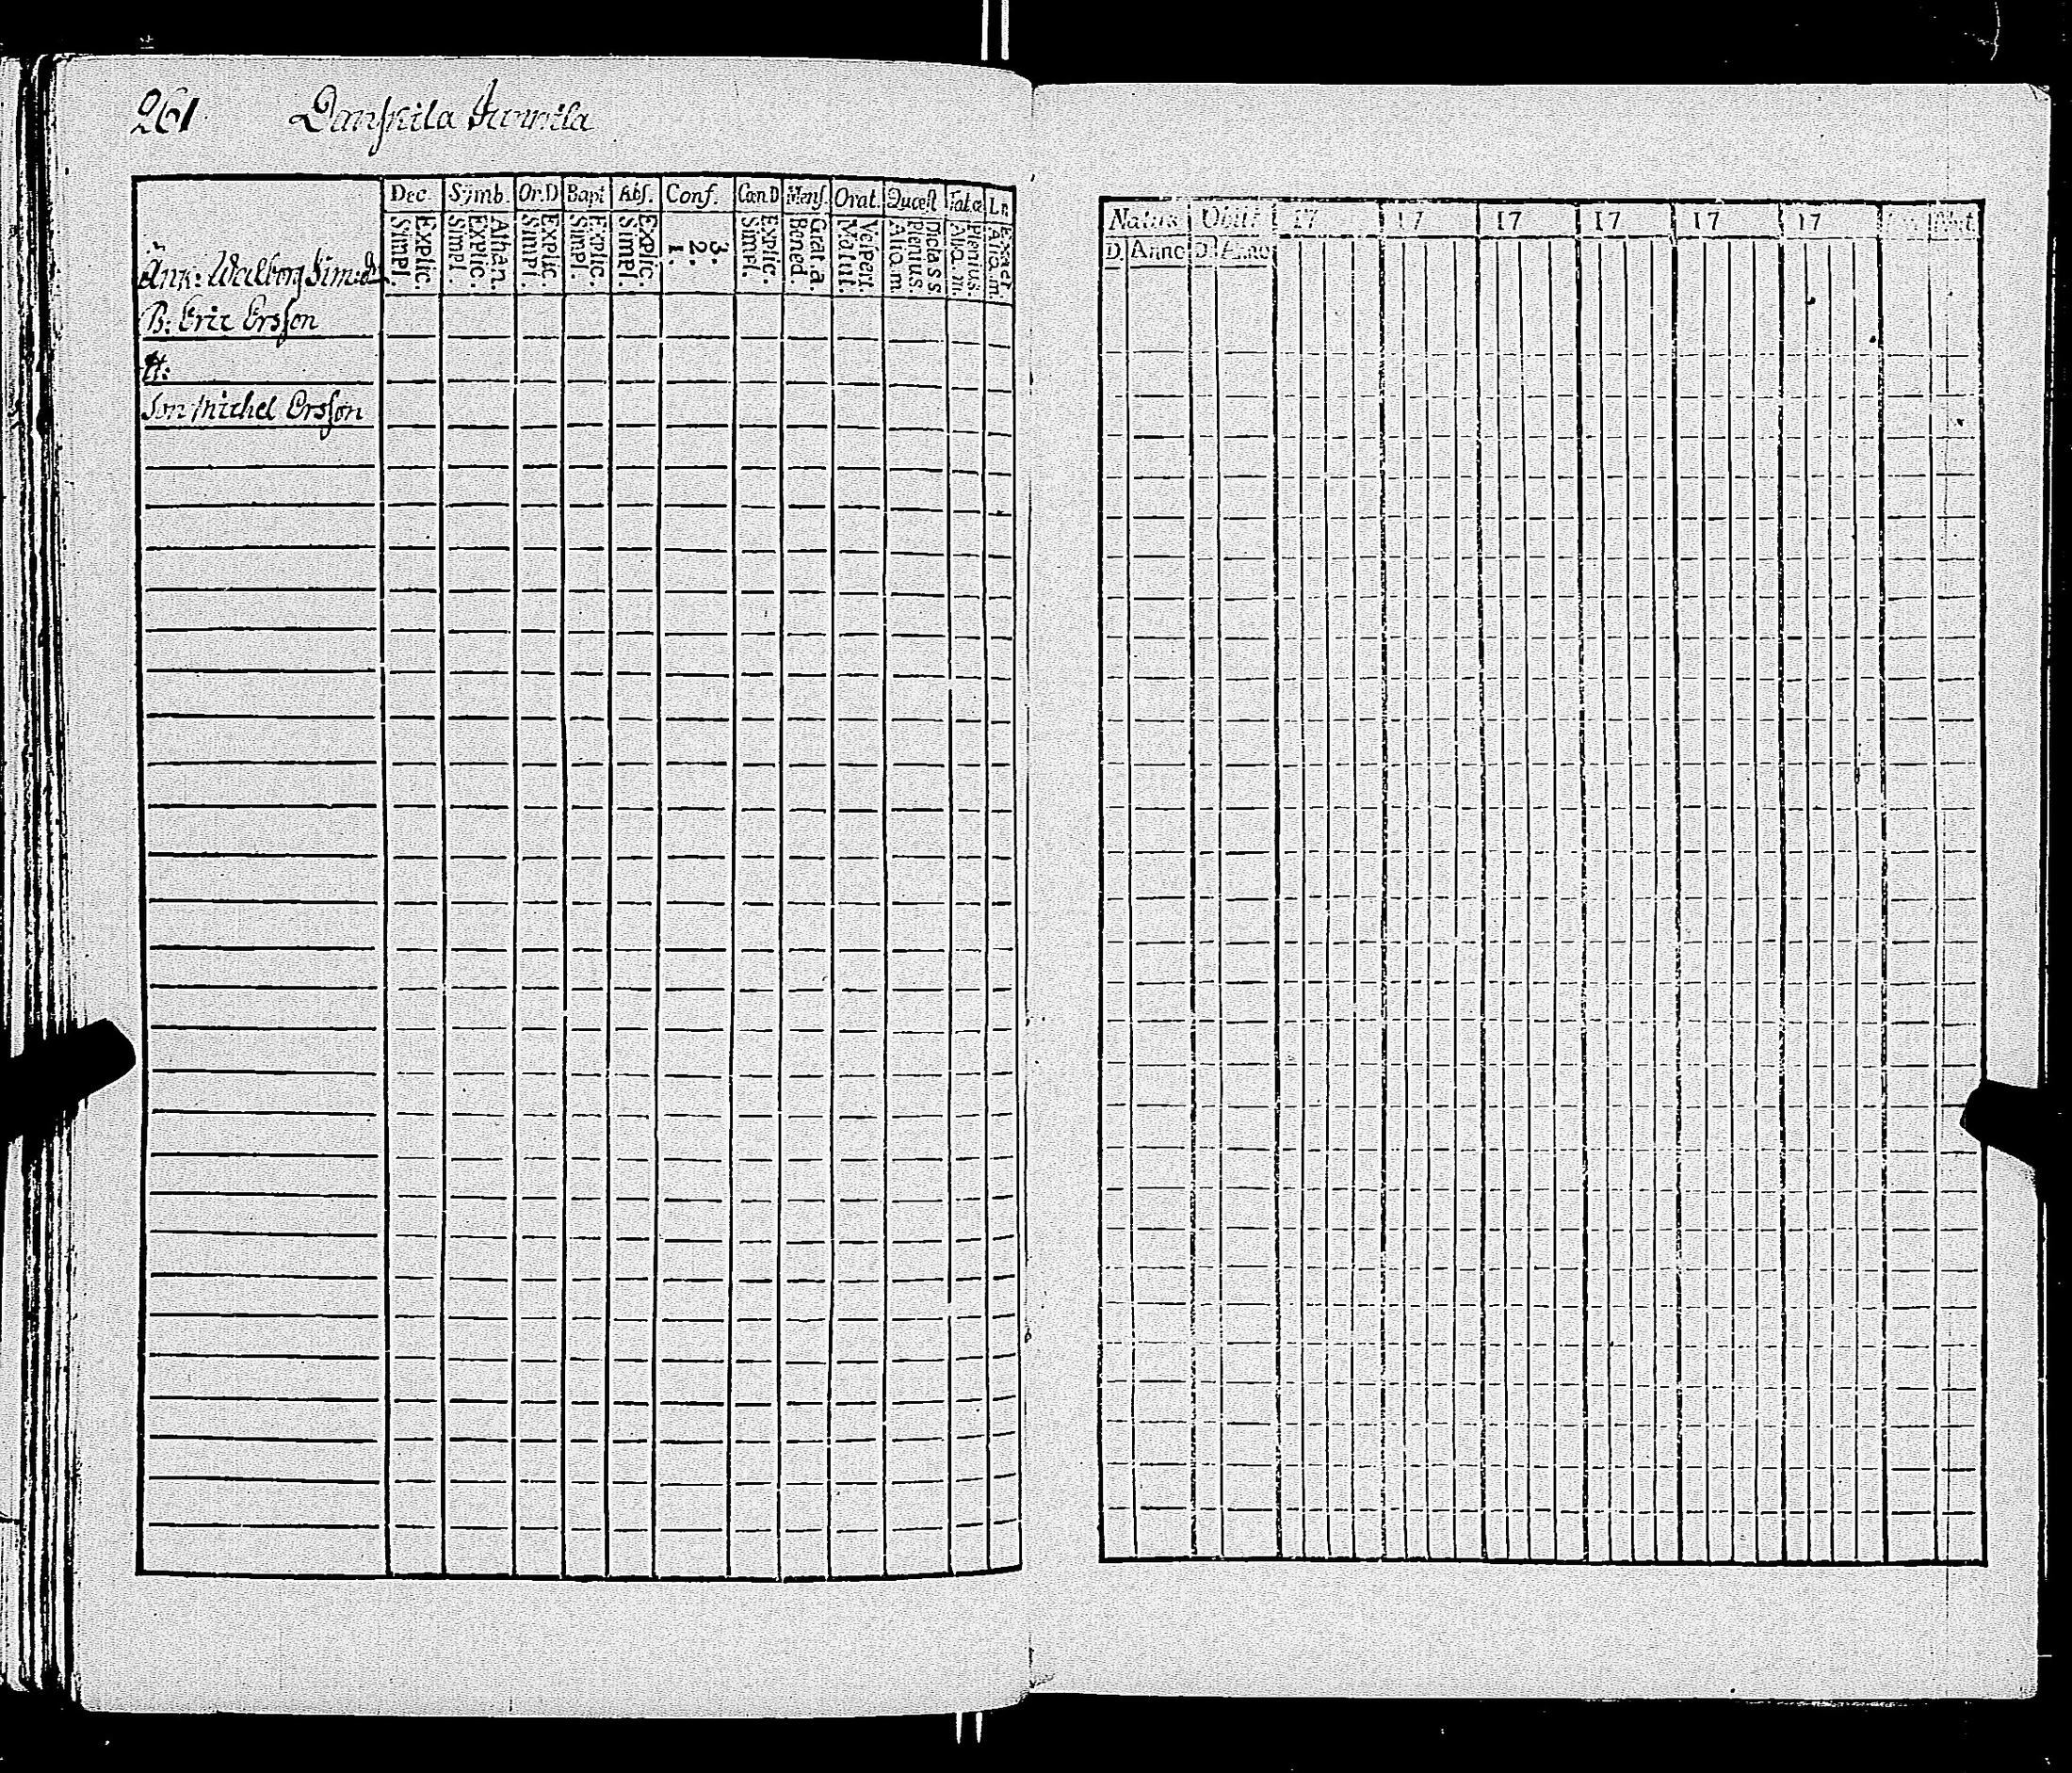 261 Danskila Junnila
Dec. Symb. Or.D Bapt Abs. Conf. Cœn.D Mens. Orat. Quæst Tabæ Ln
Simpl. Explic. Simpl. Explic. Athan. Simpl. Explic. Simpl. Explic. Simpl. Explic. 1. 2. 3. Simpl. Explic. Bened. Grat.a Matut. Vespert. Aliq.m Plenius. Dicta ss Aliq.m. Plenius. Aliq.m. Exact.
Änk: Walborg Sim:d
B: Eric Ersson
H:
Son Michel Ersson
Natus Obiit 17 17 17 17 17 17
D. Anno D. Anno